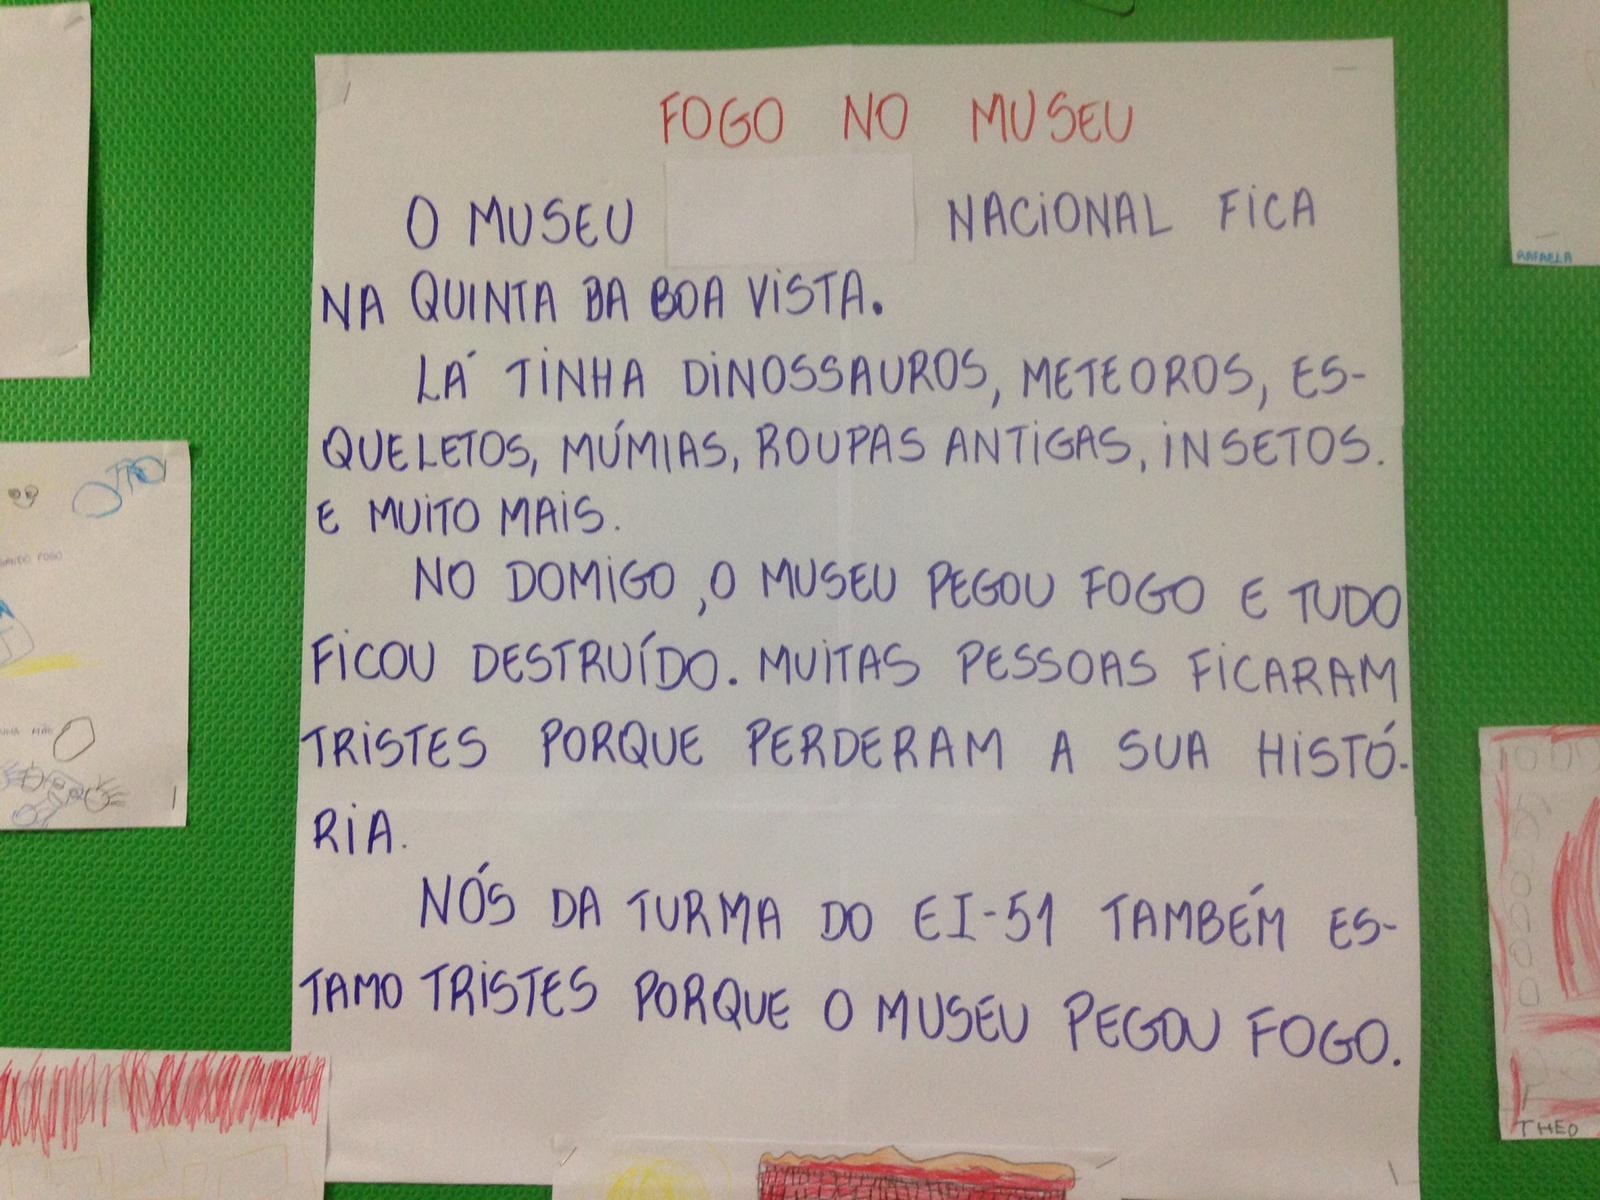 FOGO NO MUSEU
O MUSEU NACIONAL FICA
NA QUINTA DA BOA VISTA.
LÁ TINHA DINOSSAUROS, METEOROS, ES-
QUELETOS, MÚMIAS, ROUPAS ANTIGAS, INSETOS.
E MUITO MAIS.
NO DOMIGO, O MUSEU PEGOU FOGO E TUDO
FICOU DESTRUÍDO. MUITAS PESSOAS FICARAM
TRISTES PORQUE PERDERAM A SUA HISTÓ-
RIA.
NÓS DA TURMA DO EI-51 TAMBÉM ES-
TAMO TRISTES PORQUE O MUSEU PEGOU FOGO.
RAFAELA
OTTO
FOGO
THEO